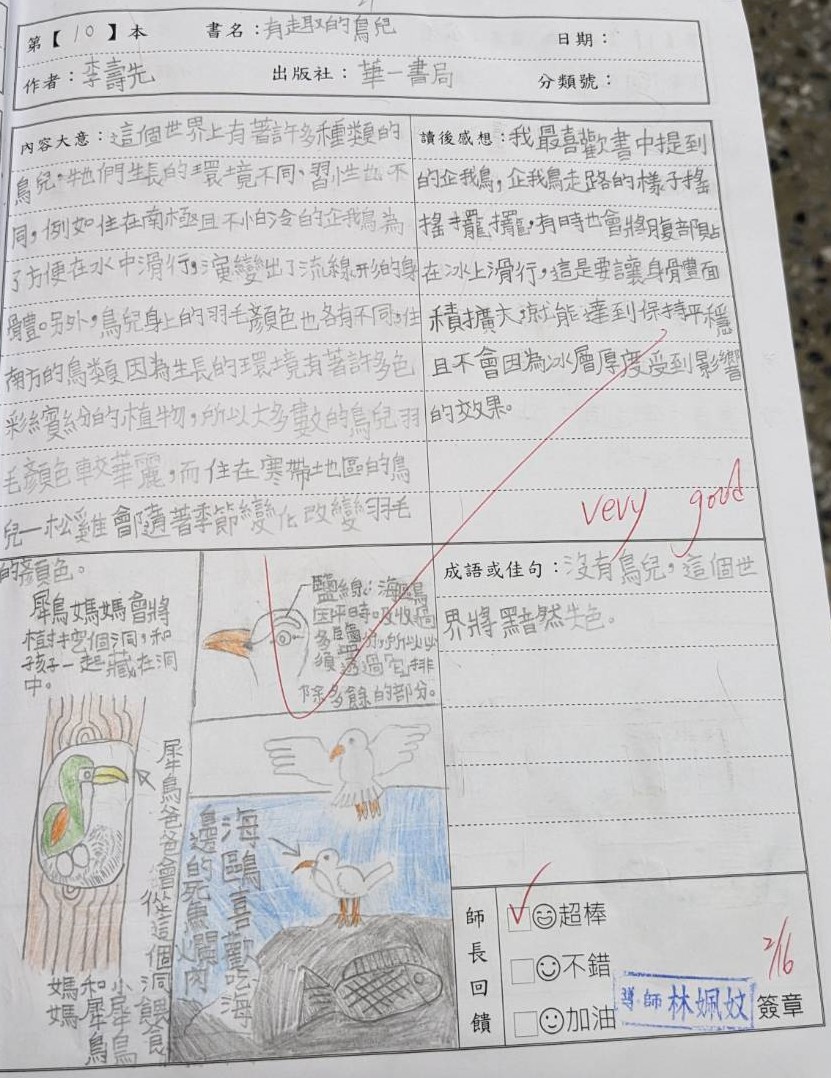 第【 10 】本 書名：有趣的鳥兒 日期：
作者：李壽先 出版社：華一書局 分類號：
內容大意：這個世界上有著許多種類的
鳥兒，牠們生長的環境不同、習性也不
同，例如住在南極且不怕冷的企鵝鳥為
了方便在水中滑行，演變出了流線形的身
體。另外，鳥兒身上的羽毛顏色也各有不同，住
南方的鳥類因為生長的環境有著許多色
彩繽紛的植物，所以大多數的鳥兒羽
毛顏色較華麗，而住在寒帶地區的鳥
兒—松雞會隨著季節變化改變羽毛
的顏色。
讀後感想：我最喜歡書中提到
的企鵝鳥，企鵝鳥走路的樣子搖
搖擺擺，有時也會將腹部貼
在冰上滑行，這是要讓身體面
積擴大，就能達到保持平穩
且不會因為冰層厚度受到影響
的效果。
very good
犀鳥媽媽會將
樹挖個洞，和
孩子一起藏在洞
中。
犀鳥爸爸會從這個洞餵食
媽媽和小犀鳥
鹽線：海鷗鳥
因平時吸收過
多鹽分，所以必
須透過「它」排
除多餘的部分。
海鷗喜歡吃海
邊的死魚爛肉
成語或佳句：沒有鳥兒，這個世
界將黯然失色。
師長回饋
超棒
不錯
加油
2/16
導師 林姵妏 簽章